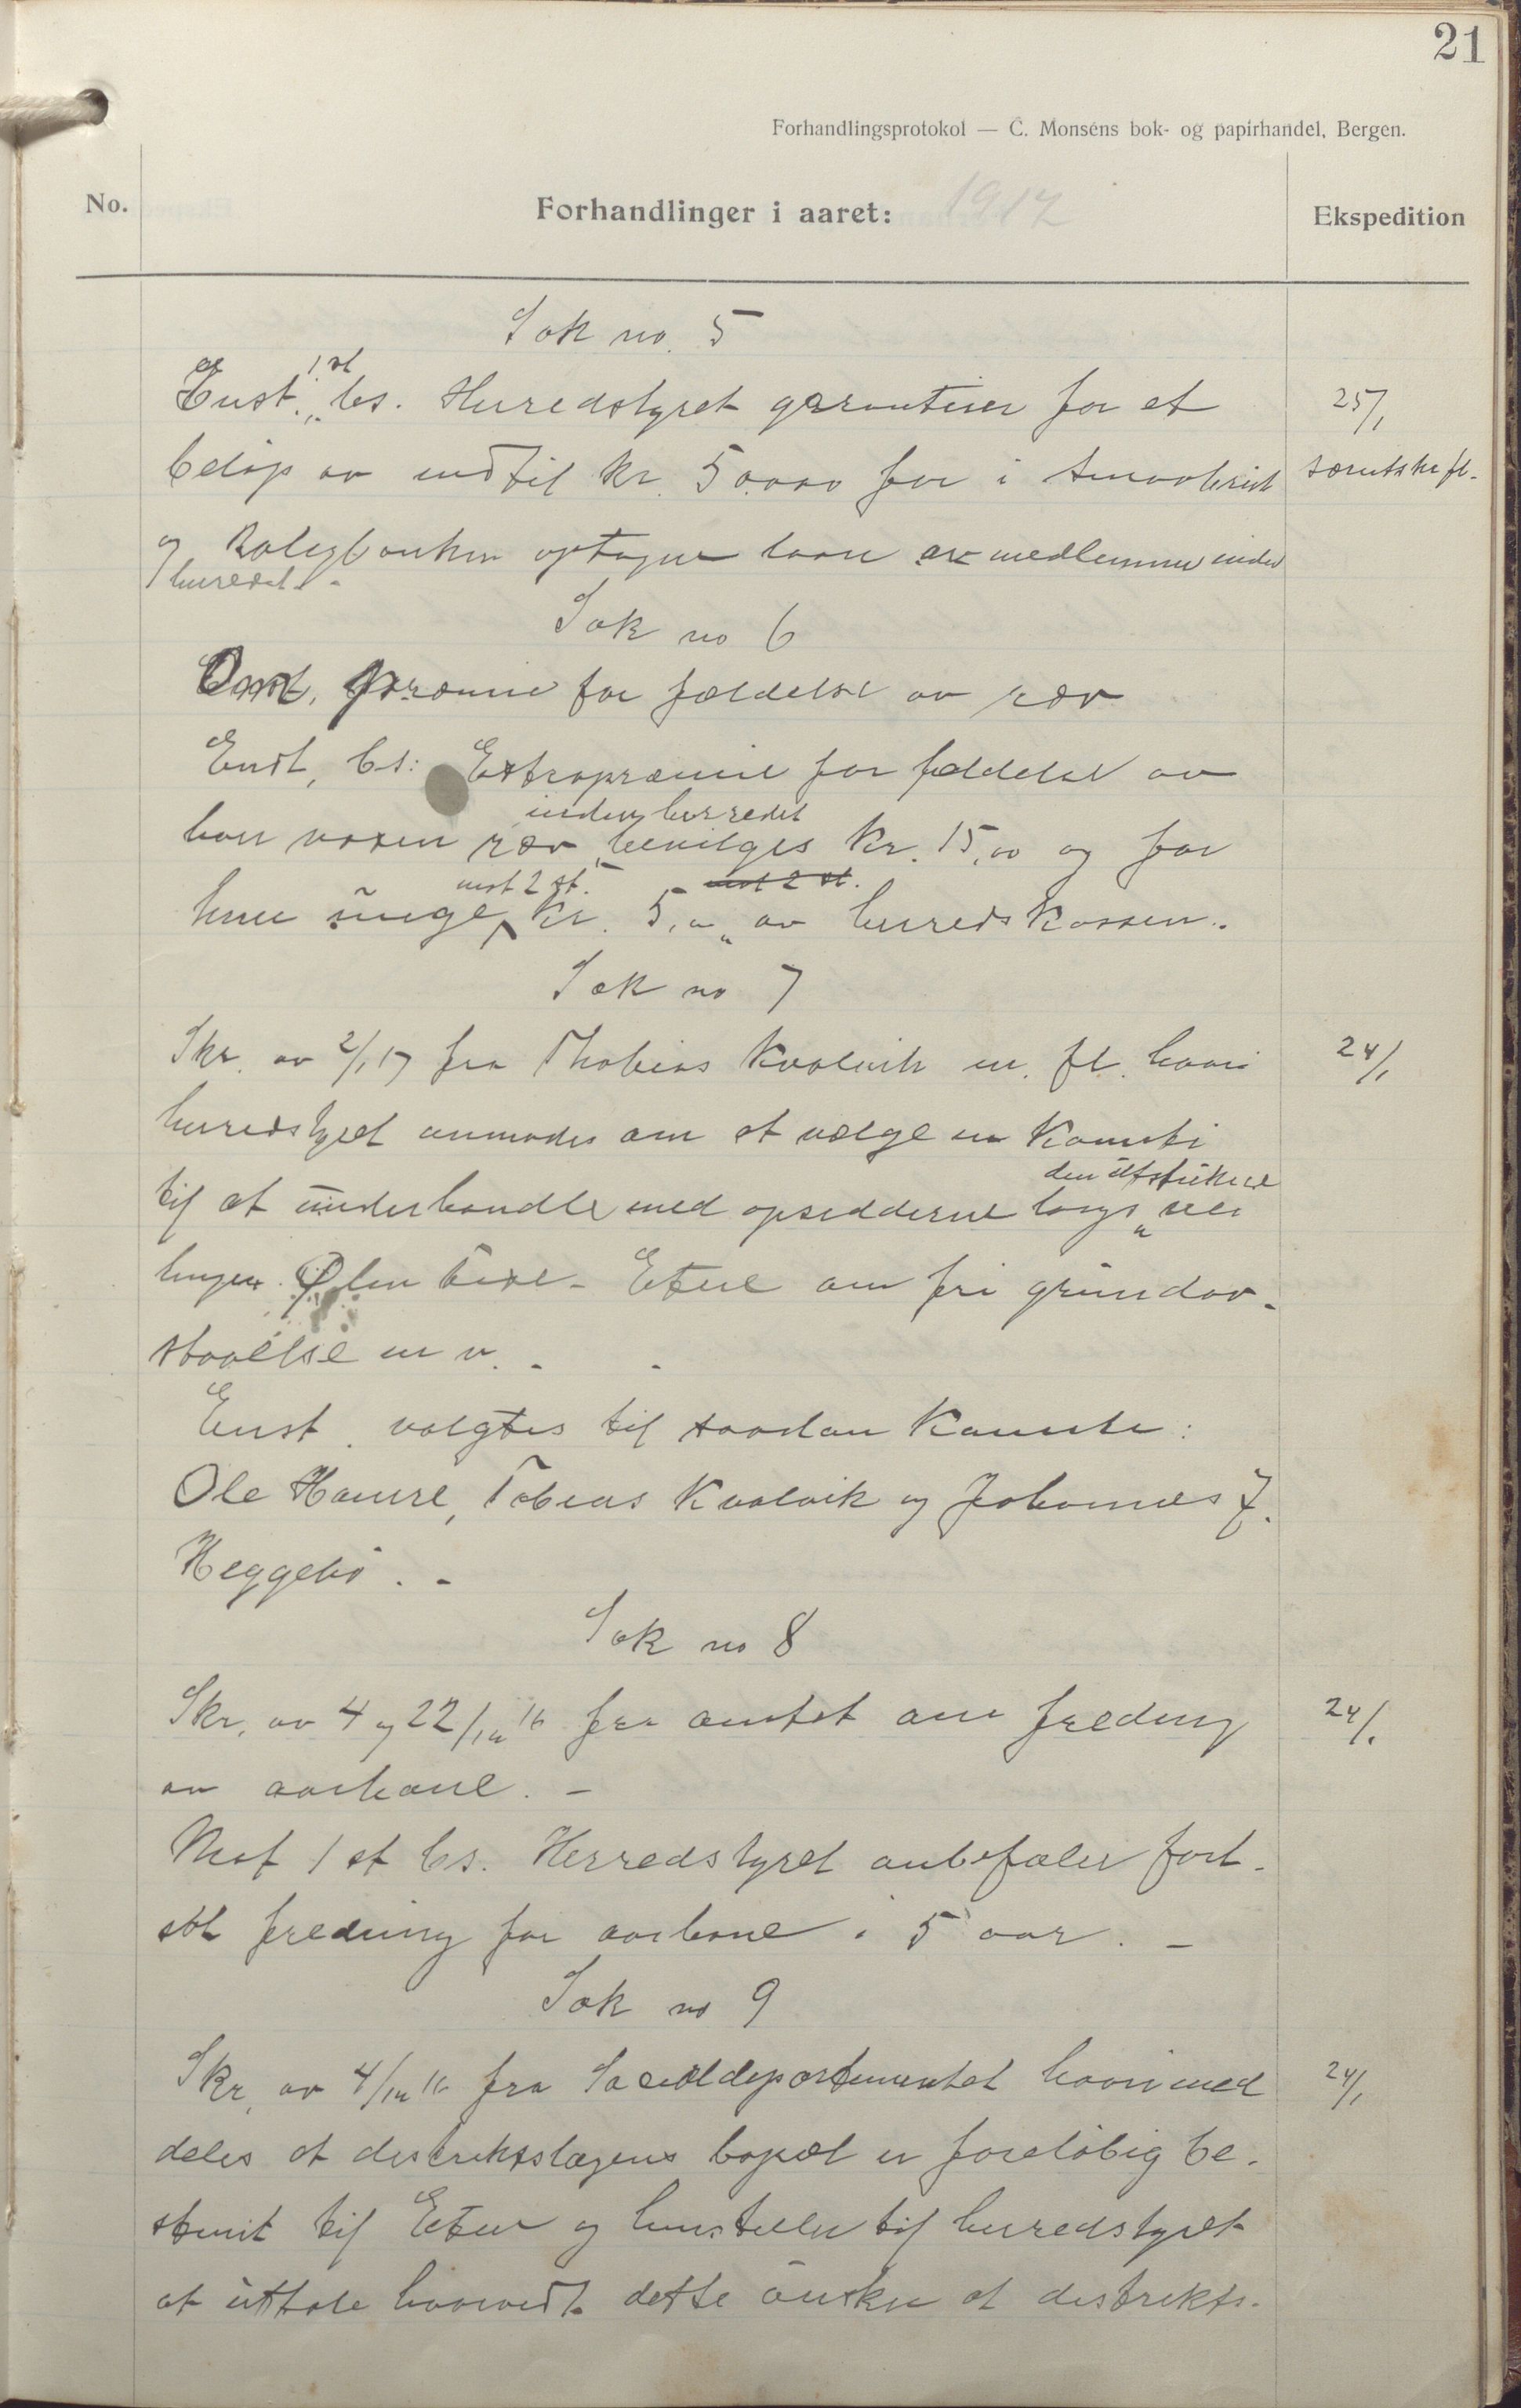 21
Forhandlingsprotokol — C. Monsens bok- og papirhandel, Bergen.
No.
Forhandlinger i aaret: 1917
Ekspedition
Sak no. 5
Enst. bs. Herredstyret garanterer for et
25/1
beløp av indtil kr. 50000 for i Smaabruk
særutskrft.
og Boligbanken optagne laan av medlemmer inden
herredet.
Sak no 6
Præmie for fældelse av ræv
Enst, bs: Extrapræmie for fældelse av
inden herredet
hver voxen ræv bevilges kr. 15,00 og for
mot 2 st.
mot 2 st.
hver unge kr. 5,00 av herredskassen.
Sak no 7
Skr. av 2/1 17 fra Thobias Kvalvik m. fl. hvori
24/1
herredstyret anmodes om at vælge en komite
den utstukne
til at underhandle med opsidderne langs vei
linjen Ølen Tere - Etne om fri grundav-
staaelse m v. -
Enst. valgtes til saadan komite:
Ole Hamre, Tobias Kvalvik og Johannes J.
Heggebø. -
Sak no 8
Skr. av 4 og 22/12 16 fra amtet om fredning
24/1
av aarhane. -
Mot 1 st bs. Herredstyret anbefaler fort-
sat fredning for aarhane i 5 aar. -
Sak no 9
Skr. av 4/12 16 fra Socialdepartementet hvori med
24/1
deles at distriktslægens bopæl er foreløbig be-
stemt til Etne og henstiller til herredstyret
at uttale hvorvidt dette ønsker at distrikts-